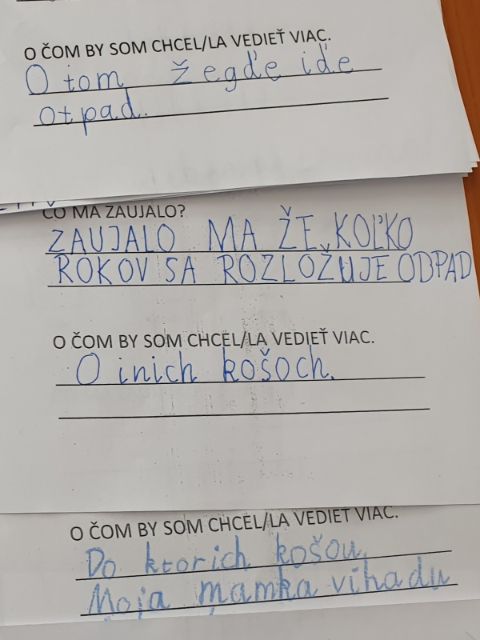 O ČOM BY SOM CHCEL/LA VEDIEŤ VIAC.
O tom žegďe iďe
otpad.
ČO MA ZAUJALO?
ZAUJALO MA ŽE KOĽKO
ROKOV SA ROZLOŽUJE ODPAD
O ČOM BY SOM CHCEL/LA VEDIEŤ VIAC.
O inich košoch.
O ČOM BY SOM CHCEL/LA VEDIEŤ VIAC.
Do ktorich košou
Moja mamka vihadu